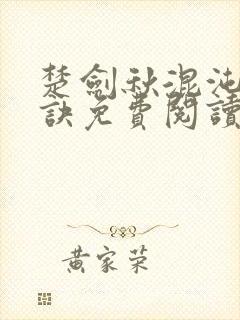 楚劍秋混沌
訣免費閱讀
黃家荣